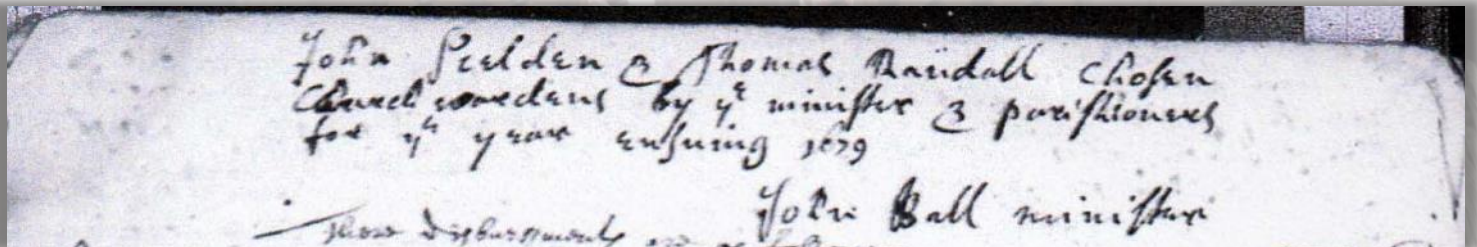 John Seelden & Thomas Randall Chosen
Churchwardens by ye minister & parishioners
for ye year ensuing 1679
John Ball minister
disbursements